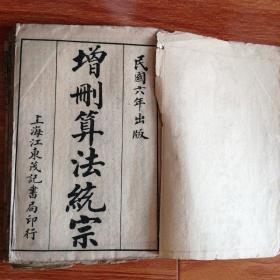 民國六年出版
增刪算法統宗
上海江東茂記書局印行